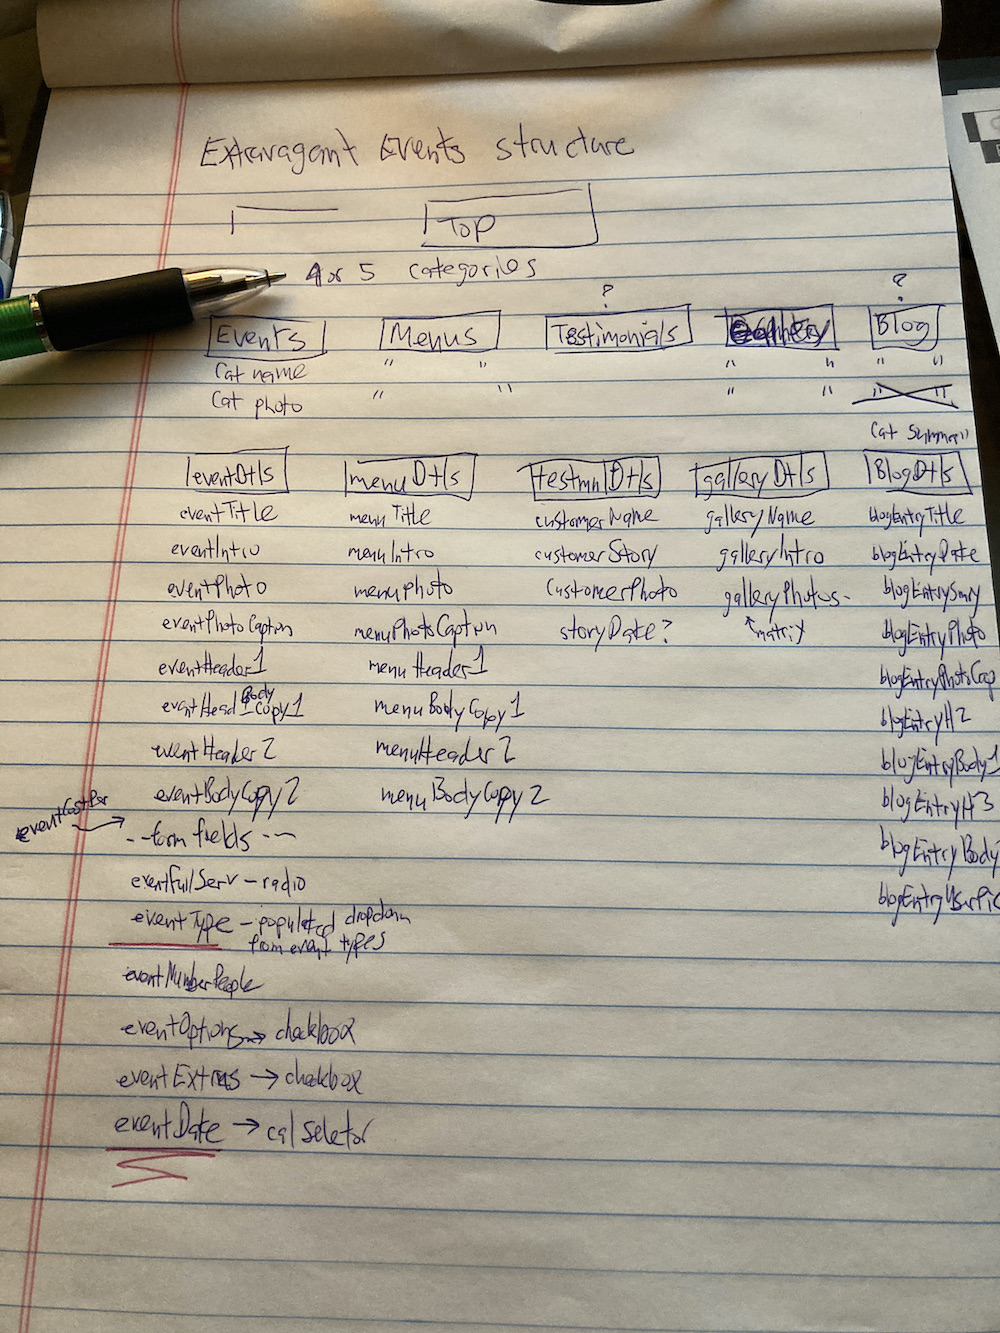 Extravagant Events structure
Top
4 or 5 categories
? ?
Events Menus Testimonials Gallery Blog
Cat name " " " " " "
Cat photo " " " " " "
Cat Summary
eventDtls menuDtls testmnlDtls galleryDtls BlogDtls
eventTitle menuTitle customerName galleryName blogEntryTitle
eventIntro menuIntro customerStory galleryIntro blogEntryDate
eventPhoto menuphoto customerPhoto galleryPhotos- blogEntrySmry
eventPhotoCaption menuPhotoCaption storyDate? matrix blogEntryPhoto
eventHeader1 menuHeader1 blogEntryPhotoCap
Body
eventHead Copy1 menuBodyCopy1 blogEntryH2
eventHeader2 menuHeader2 blogEntryBody1
eventBodyCopy2 menuBodyCopy2 blogEntryH3
--form fields -- blogEntryBody
eventFulServ - radio blogEntryUserPic
eventType - populated dropdown
from event types
eventNumberPeople
eventOptions → checkbox
eventExtras → checkbox
eventDate → cal seletor